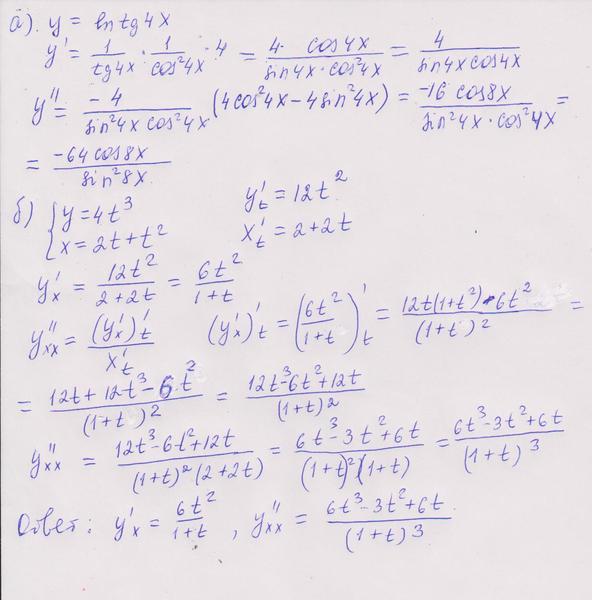 а). y = ln tg 4x
y' = 1/(tg4x) · 1/(cos²4x) · 4 = (4 · cos4x)/(sin4x · cos²4x) = 4/(sin4x cos4x)
y'' = -4/(sin²4x cos²4x) (4cos²4x - 4sin²4x) = (-16 cos8x)/(sin²4x · cos²4x) =
= (-64 cos8x)/(sin²8x)
б) { y = 4t³ y't = 12t²
x = 2t + t² x't = 2 + 2t
y'x = 12t²/(2 + 2t) = 6t²/(1 + t)
y''xx = (y'x)'t/x't (y'x)'t = (6t²/(1 + t))'t = (12t(1+t²) - 6t²)/(1 + t)² =
= (12t + 12t³ - 6t²)/(1 + t)² = (12t³ - 6t² + 12t)/(1 + t)²
y''xx = (12t³ - 6t² + 12t)/((1 + t)²(2 + 2t)) = (6t³ - 3t² + 6t)/((1 + t)²(1 + t)) = (6t³ - 3t² + 6t)/(1 + t)³
Ответ: y'x = 6t²/(1 + t), y''xx = (6t³ - 3t² + 6t)/(1 + t)³